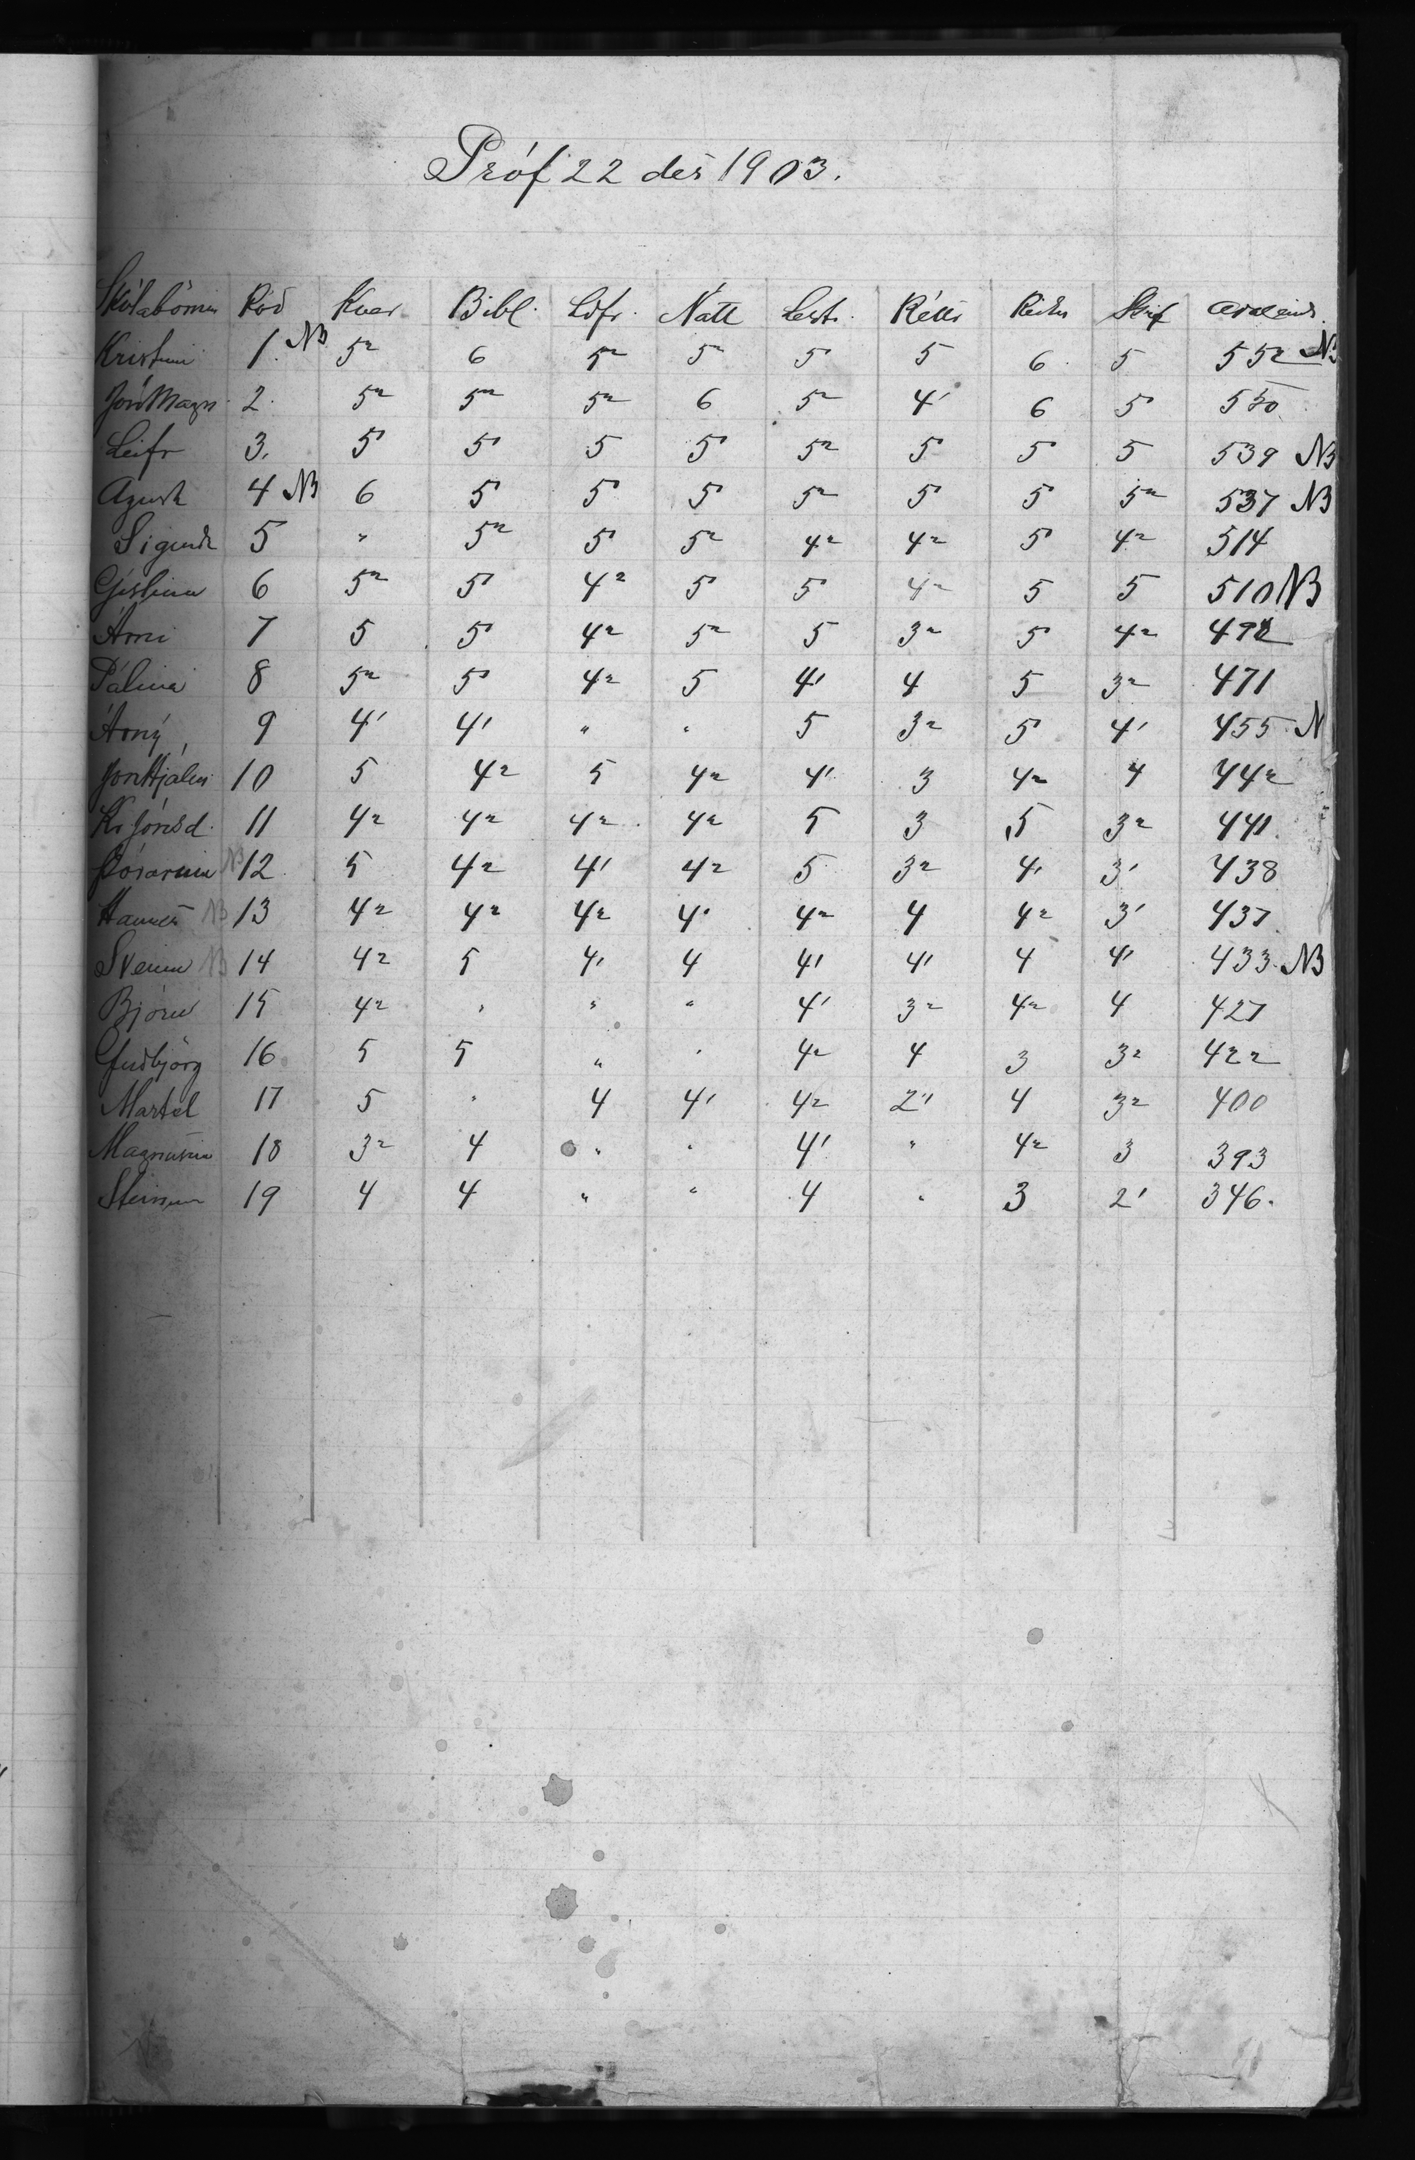 Próf 22 des 1903.
Skólabörnin Röð Kver Bibl. Ldfr. Nátt Lest. Réttr Reikn Skrif
Kristinn 1. NB 5² 6 5² 5² 5 5 6 5 552 NB
Jón Magn 2. 5² 5² 5² 6 5² 4' 6 5 550
Leifr 3. 5 5 5 5 5² 5 5 5 539 NB
Agust 4 NB 6 5 5 5 5² 5 5 5² 537 NB
Sigurdr 5 " 5² 5 5² 4² 4² 5 4² 514
Gíslina 6 5² 5 4² 5 5 4² 5 5 510 NB
Árni 7 5 5 4² 5² 5 3² 5 4² 492
Pálina 8 5² 5 4² 5 4' 4 5 3² 471
Árný 9 4' 4' " " 5 3² 5 4' 455 N
Jón Hjálm 10 5 4² 5 4² 4' 3 4² 4 442
Kr Jónsd. 11 4² 4² 4² 4² 5 3 5 3² 441.
Þórarinn NB 12 5 4² 4' 4² 5 3² 4' 3' 438
Hannes NB 13 4² 4² 4² 4' 4² 4 4² 3' 437
Sveinn NB 14 4² 5 4' 4 4' 4' 4 4' 433. NB
Björn 15 4² " " " 4' 3² 4² 4 427
Guðbjörg 16 5 5 " " 4² 4 3 3² 422
Martel 17 5 " 4 4' 4² 2' 4 3² 400
Magnusína 18 3² 4 " " 4' " 4² 3 393
Steinunn 19 4 4 " " 4 " 3 2' 346.